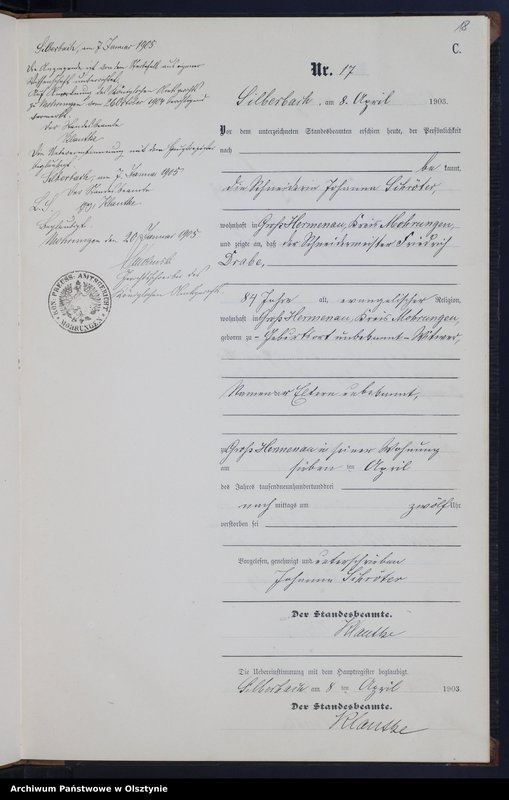 18
C.
Nr. 17
Silberbach, am 8. April 1903.
Vor dem unterzeichneten Standesbeamten erschien heute, der Persönlichkeit
nach
be kannt,
die Schneiderin Johanna Schröter,
wohnhaft in Groß Hermenau, Kreis Mohrungen,
und zeigte an, daß der Schneidermeister Friedrich
Drabe,
84 Jahre alt, evangelischer Religion,
wohnhaft in Groß Hermenau, Kreis Mohrungen,
geboren zu - Geburtsort unbekannt - Witwer,
Namen der Eltern unbekannt,
zu Groß Hermenau in seiner Wohnung
am sieben ten April
des Jahres tausendneunhundertunddrei
nach mittags um zwölf Uhr
verstorben sei
Vorgelesen, genehmigt und unterschrieben
Johanna Schröter
Der Standesbeamte.
Klautke
Die Uebereinstimmung mit dem Hauptregister beglaubigt.
Silberbach am 8 ten April 1903
Der Standesbeamte.
Klautke
Silberbach, am 7. Januar 1905
Die Angezeigte ist von dem Sterbefall aus eigener
Wissenschaft unterrichtet.
Auf Anordnung des Königlichen Amtsgerichts
zu Mohrungen vom 26 Oktober 1904
vermerkt.
Der Standesbeamte
Klautke
Die Uebereinstimmung mit dem Hauptregister
beglaubigt
Silberbach, am 7. Januar 1905
Der Standesbeamte
L.S. Klautke
Beglaubigt.
Mohrungen den 20. Januar 1905
Gerichtsschreiber des
Königlichen Amtsgerichts
KÖN. PREUSS. AMTSGERICHT
MOHRUNGEN
Archiwum Państwowe w Olsztynie